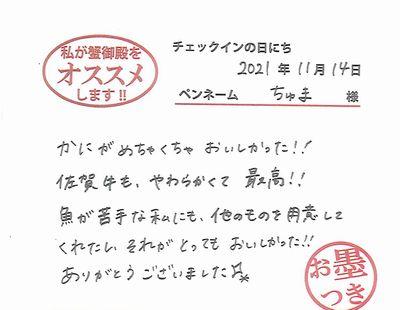 私が蟹御殿を
オススメ
します!!
チェックインの日にち
2021年11月14日
ペンネーム ちゅま 様
かにがめちゃくちゃ おいしかった!!
佐賀牛も、やわらかくて 最高!!
魚が苦手な私にも、他のものを用意して
くれたし それがとっても おいしかった!!
ありがとうございました
お墨
つき